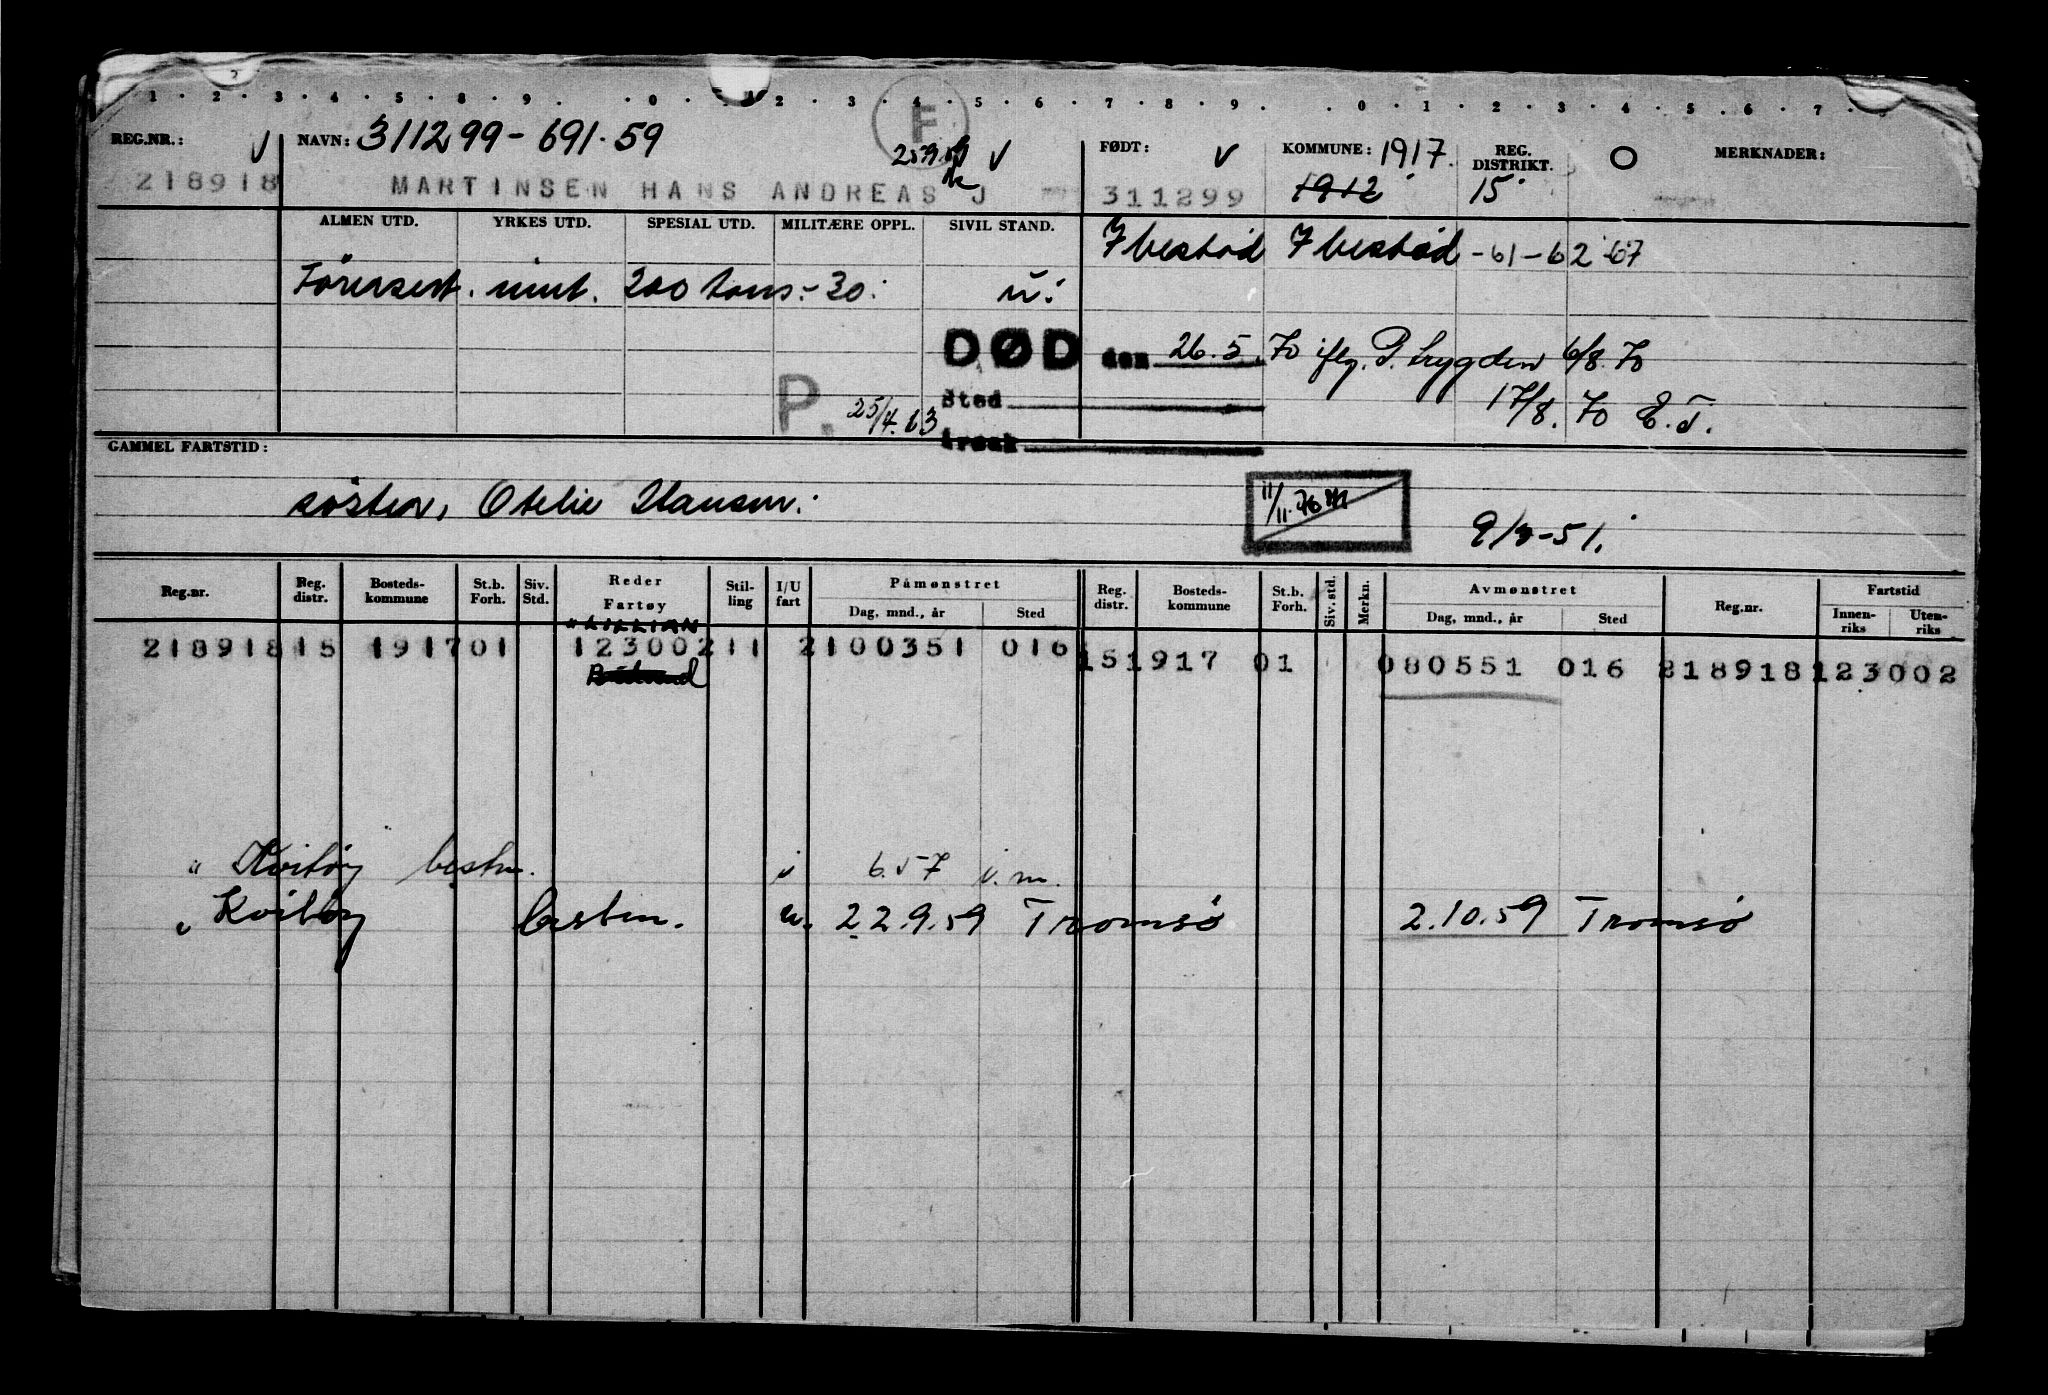 1 2 3 4 5 8 9 0 1 2 3 4 5 6 7 8 9 0 1 2 3 4 5 6 7
F
REG.NR.: V NAVN: 311299-691.59 V FØDT: V KOMMUNE: 1917. REG. DISTRIKT. O MERKNADER:
218918 MARTINSEN HANS ANDREAS J 311299 1912 15
ALMEN UTD. YRKES UTD. SPESIAL UTD. MILITÆRE OPPL. SIVIL STAND. Ibestad Ibestad -61-62-67
Förersert. innt. 200 tons.-30. u.
DØD den 26.5.70 iflg. P. trygden 6/8.70
P. 25/4.63 Sted 17/8.70 E.T.
årsak
GAMMEL FARTSTID:
söster, Otelie Hansen.
11/11.70
Reg.nr. Reg. distr. Bosteds-kommune St.b. Forh. Siv. Std. Reder Fartøy Stil-ling I/U fart Påmønstret Dag, mnd., år Sted Reg. distr. Bosteds-kommune St.b. Forh. Siv. std. Merkn. Avmønstret Dag, mnd., år Sted Reg.nr. Fartstid Innen-riks Uten-riks
218918 15 1917 01 123002 11 2 100351 016 15 1917 01 080551 016 218918 123002
" Kvitøy bestm. i 6.57 i.m.
" Kvitøy bestm. u. 22.9.59 Tromsö 2.10.59 Tromsö